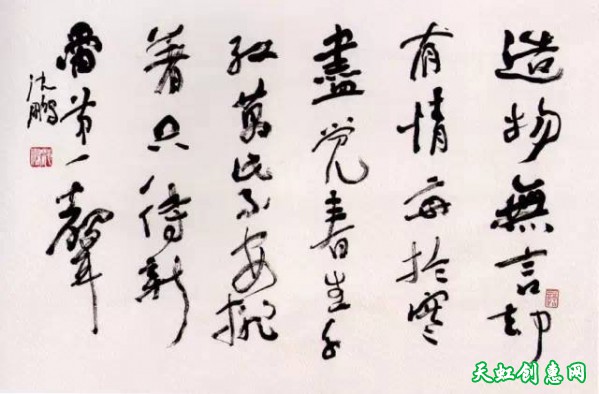 造物無言却
有情每於寒
盡觉春生千
紅萬紫安排
著只待新
雷第一聲
沈鹏
天虹创惠网